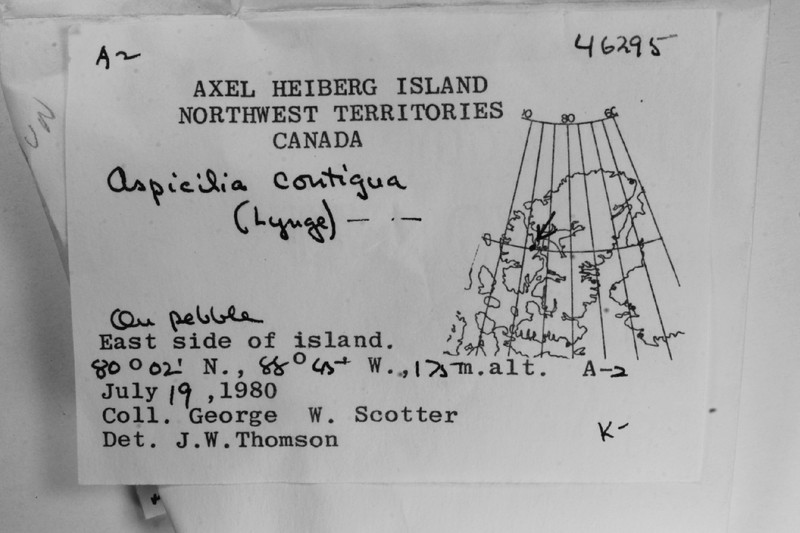 A2
46295
AXEL HEIBERG ISLAND
NORTHWEST TERRITORIES
CANADA
80
Aspicilia contigua
(Lynge) — . —
On pebble
East side of island.
80°02' N., 88°45' W., 175 m.alt. A-2
July 19, 1980
Coll. George W. Scotter
Det. J.W.Thomson
K-